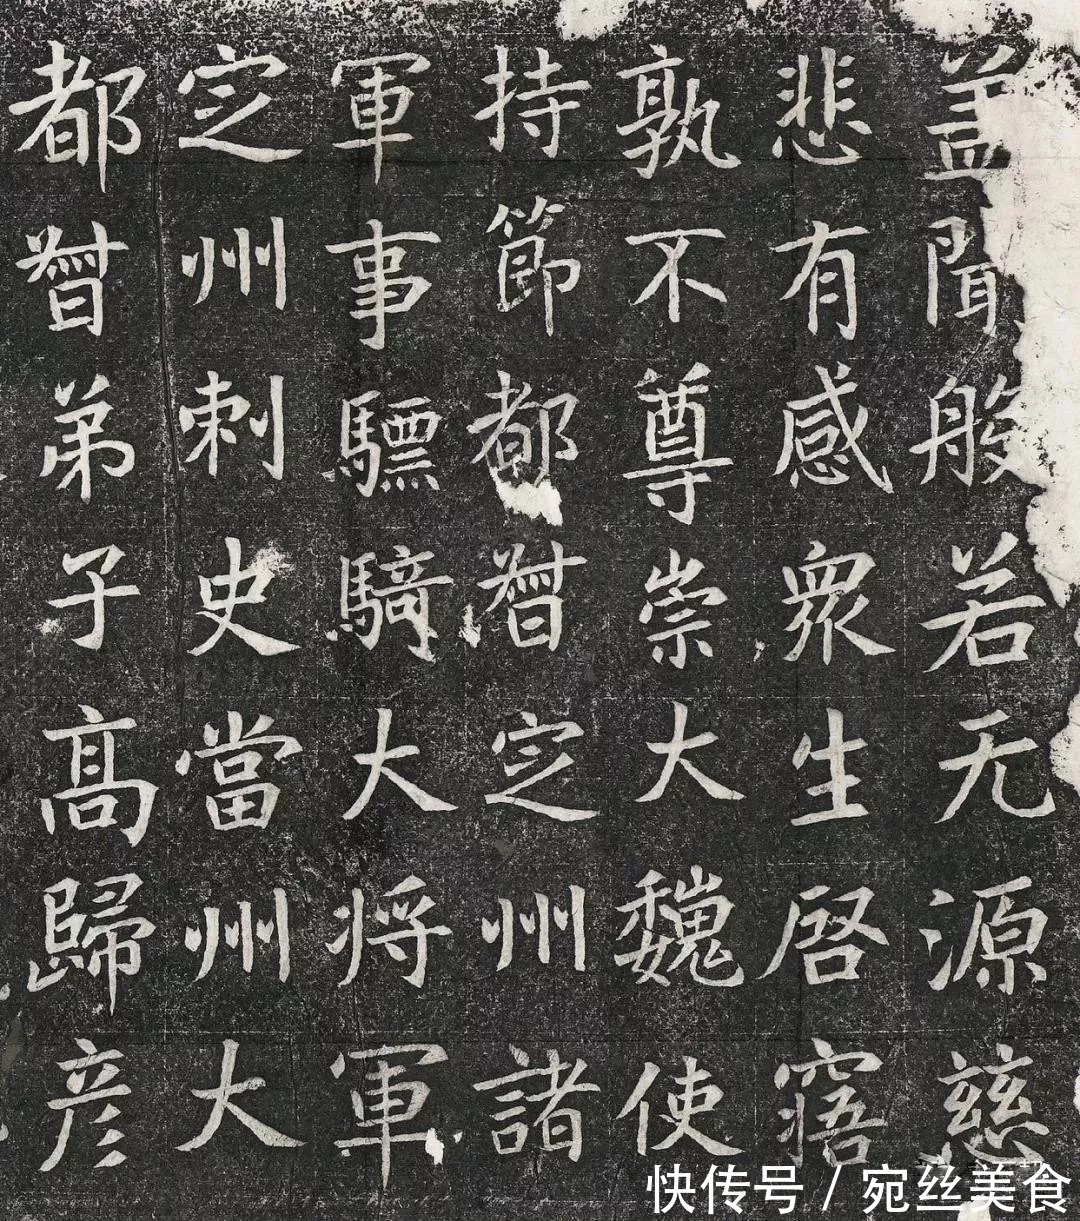 盖聞般若无源慈
悲有感衆生啓寤
孰不尊崇大魏使
持節都督定州諸
軍事驃騎大將軍
定州刺史當州大
都督弟子高歸彦
快传号 / 宛丝美食